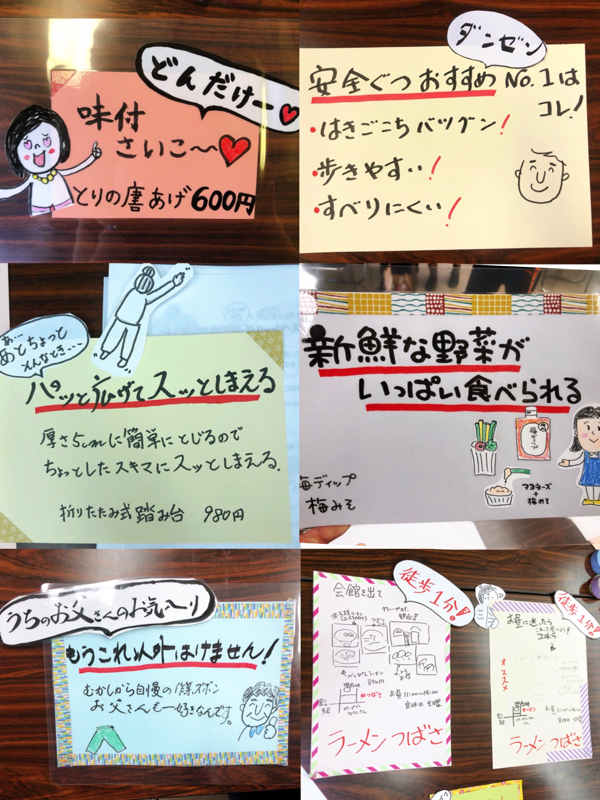 どんだけー
味付
さいこ〜
とりの唐あげ 600円
ダンゼン
安全ぐつ おすすめ No.1は
コレ!
・はきごこち バツグン!
・歩きやすい!
・すべりにくい!
あ…
あとちょっと
そんなとき…
パッと広げてスッとしまえる
厚さ5cmに簡単にとじるので
ちょっとしたスキマにスッとしまえる。
折りたたみ式踏み台 980円
新鮮な野菜が
いっぱい食べられる
梅みそ
マヨネーズ
+
梅みそ
梅ディップ
梅みそ
うちのお父さんのお気〜り
もうこれ以外はけません!
むかしから自慢の作業ズボン
お父さんも一好きなんです。
徒歩1分!
会館を出て
ラーメンつばさ
徒歩1分!
お昼に迷ったら
オススメ
ラーメンつばさ